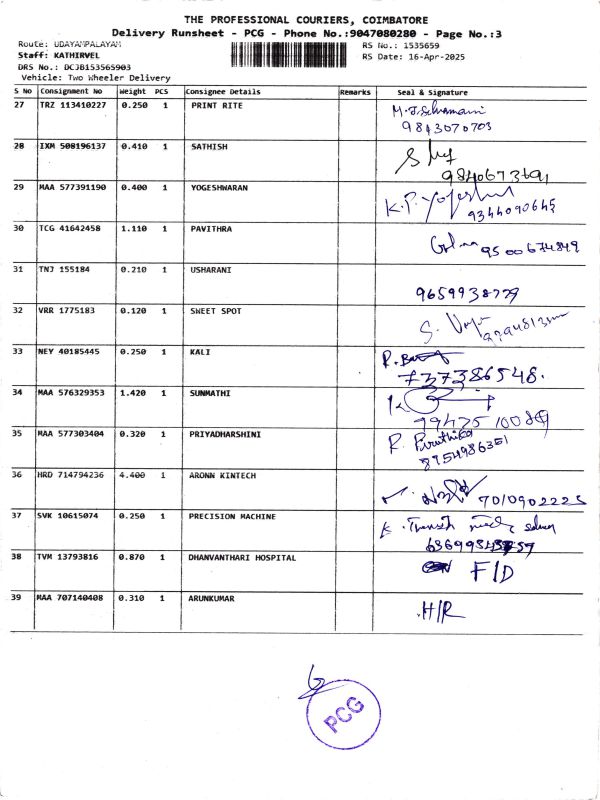 THE PROFESSIONAL COURIERS, COIMBATORE
Delivery Runsheet - PCG - Phone No.:9047080280 - Page No.:3
Route: UDAYAMPALAYAM
RS No.: 1535659
Staff: KATHIRVEL
RS Date: 16-Apr-2025
DRS No.: DCJB153565903
Vehicle: Two Wheeler Delivery
S No Consignment No Weight PCS Consignee Details Remarks Seal & Signature
27 TRZ 113410227 0.250 1 PRINT RITE
9843070703
28 IXM 508196137 0.410 1 SATHISH
9840673691
29 MAA 577391190 0.400 1 YOGESHWARAN K.P.
9344090645
30 TCG 41642458 1.110 1 PAVITHRA
9500674849
31 TNJ 155184 0.210 1 USHARANI
9659938779
32 VRR 1775183 0.120 1 SWEET SPOT S.
33 NEY 40185445 0.250 1 KALI R.
7373865 48.
34 MAA 576329353 1.420 1 SUNMATHI
35 MAA 577303404 0.320 1 PRIYADHARSHINI R.
8954986351
36 HRD 714794236 4.400 1 ARONN KINTECH
7010902225
37 SVK 10615074 0.250 1 PRECISION MACHINE K.
38 TVM 13793816 0.870 1 DHANVANTHARI HOSPITAL F/D
39 MAA 707140408 0.310 1 ARUNKUMAR H/R
PCG